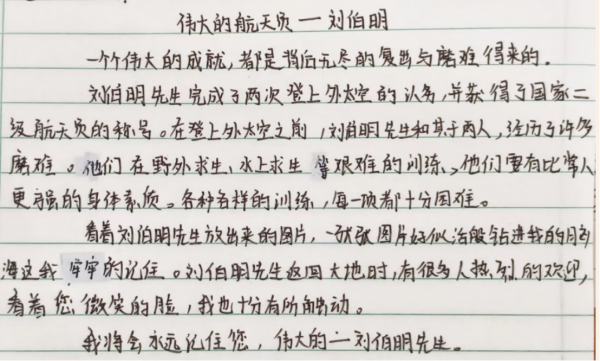 伟大的航天员一刘伯明
一个个伟大的成就,都是背后无尽的复出与磨难得来的。
刘伯明先生完成了两次登上外太空的认务,并获得了国家二
级航天员的称号。在登上外太空之前,刘伯明先生和其于两人,经历了许多
磨难。他们在野外求生、水上求生等艰难的训练,他们要有比常人
更强的身体素质。各种各样的训练,每一项都十分困难。
看着刘伯明先生放出来的图片,一张张图片好似活般钻进我的
海这我牢牢的记住。刘伯明先生返回大地时,有很多人热烈的欢迎,
看着您微笑的脸,我也十分有所触动。
我将会永远记住您,伟大的一刘伯明先生。